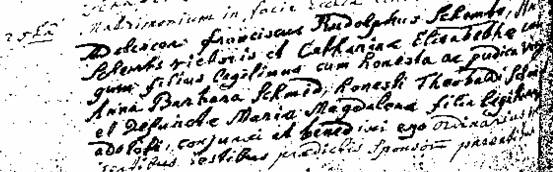 25ta Matrimonium in facie
Adolescens Franciscus Rudolphus Schembs,
Schembs Victoris et Catharina Elisabetha con
gum filius Legitimus cum honesta ac pudica virg
Anna Barbara Schmid, honesti Theobaldi Schmi
et Defuncta Maria Magdalena filia legitima
adolesc, conjunxi et benedixi ego ordinarius
testibus praedictis Sponsorum parentibus